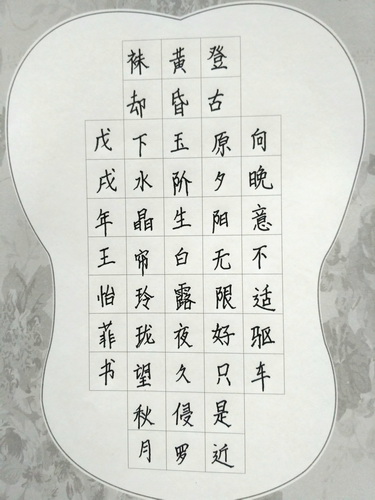 向晚意不适驱车
登古原夕阳无限好只是近
黄昏玉阶生白露夜久侵罗
袜却下水晶帘玲珑望秋月
戊戌年王怡菲书